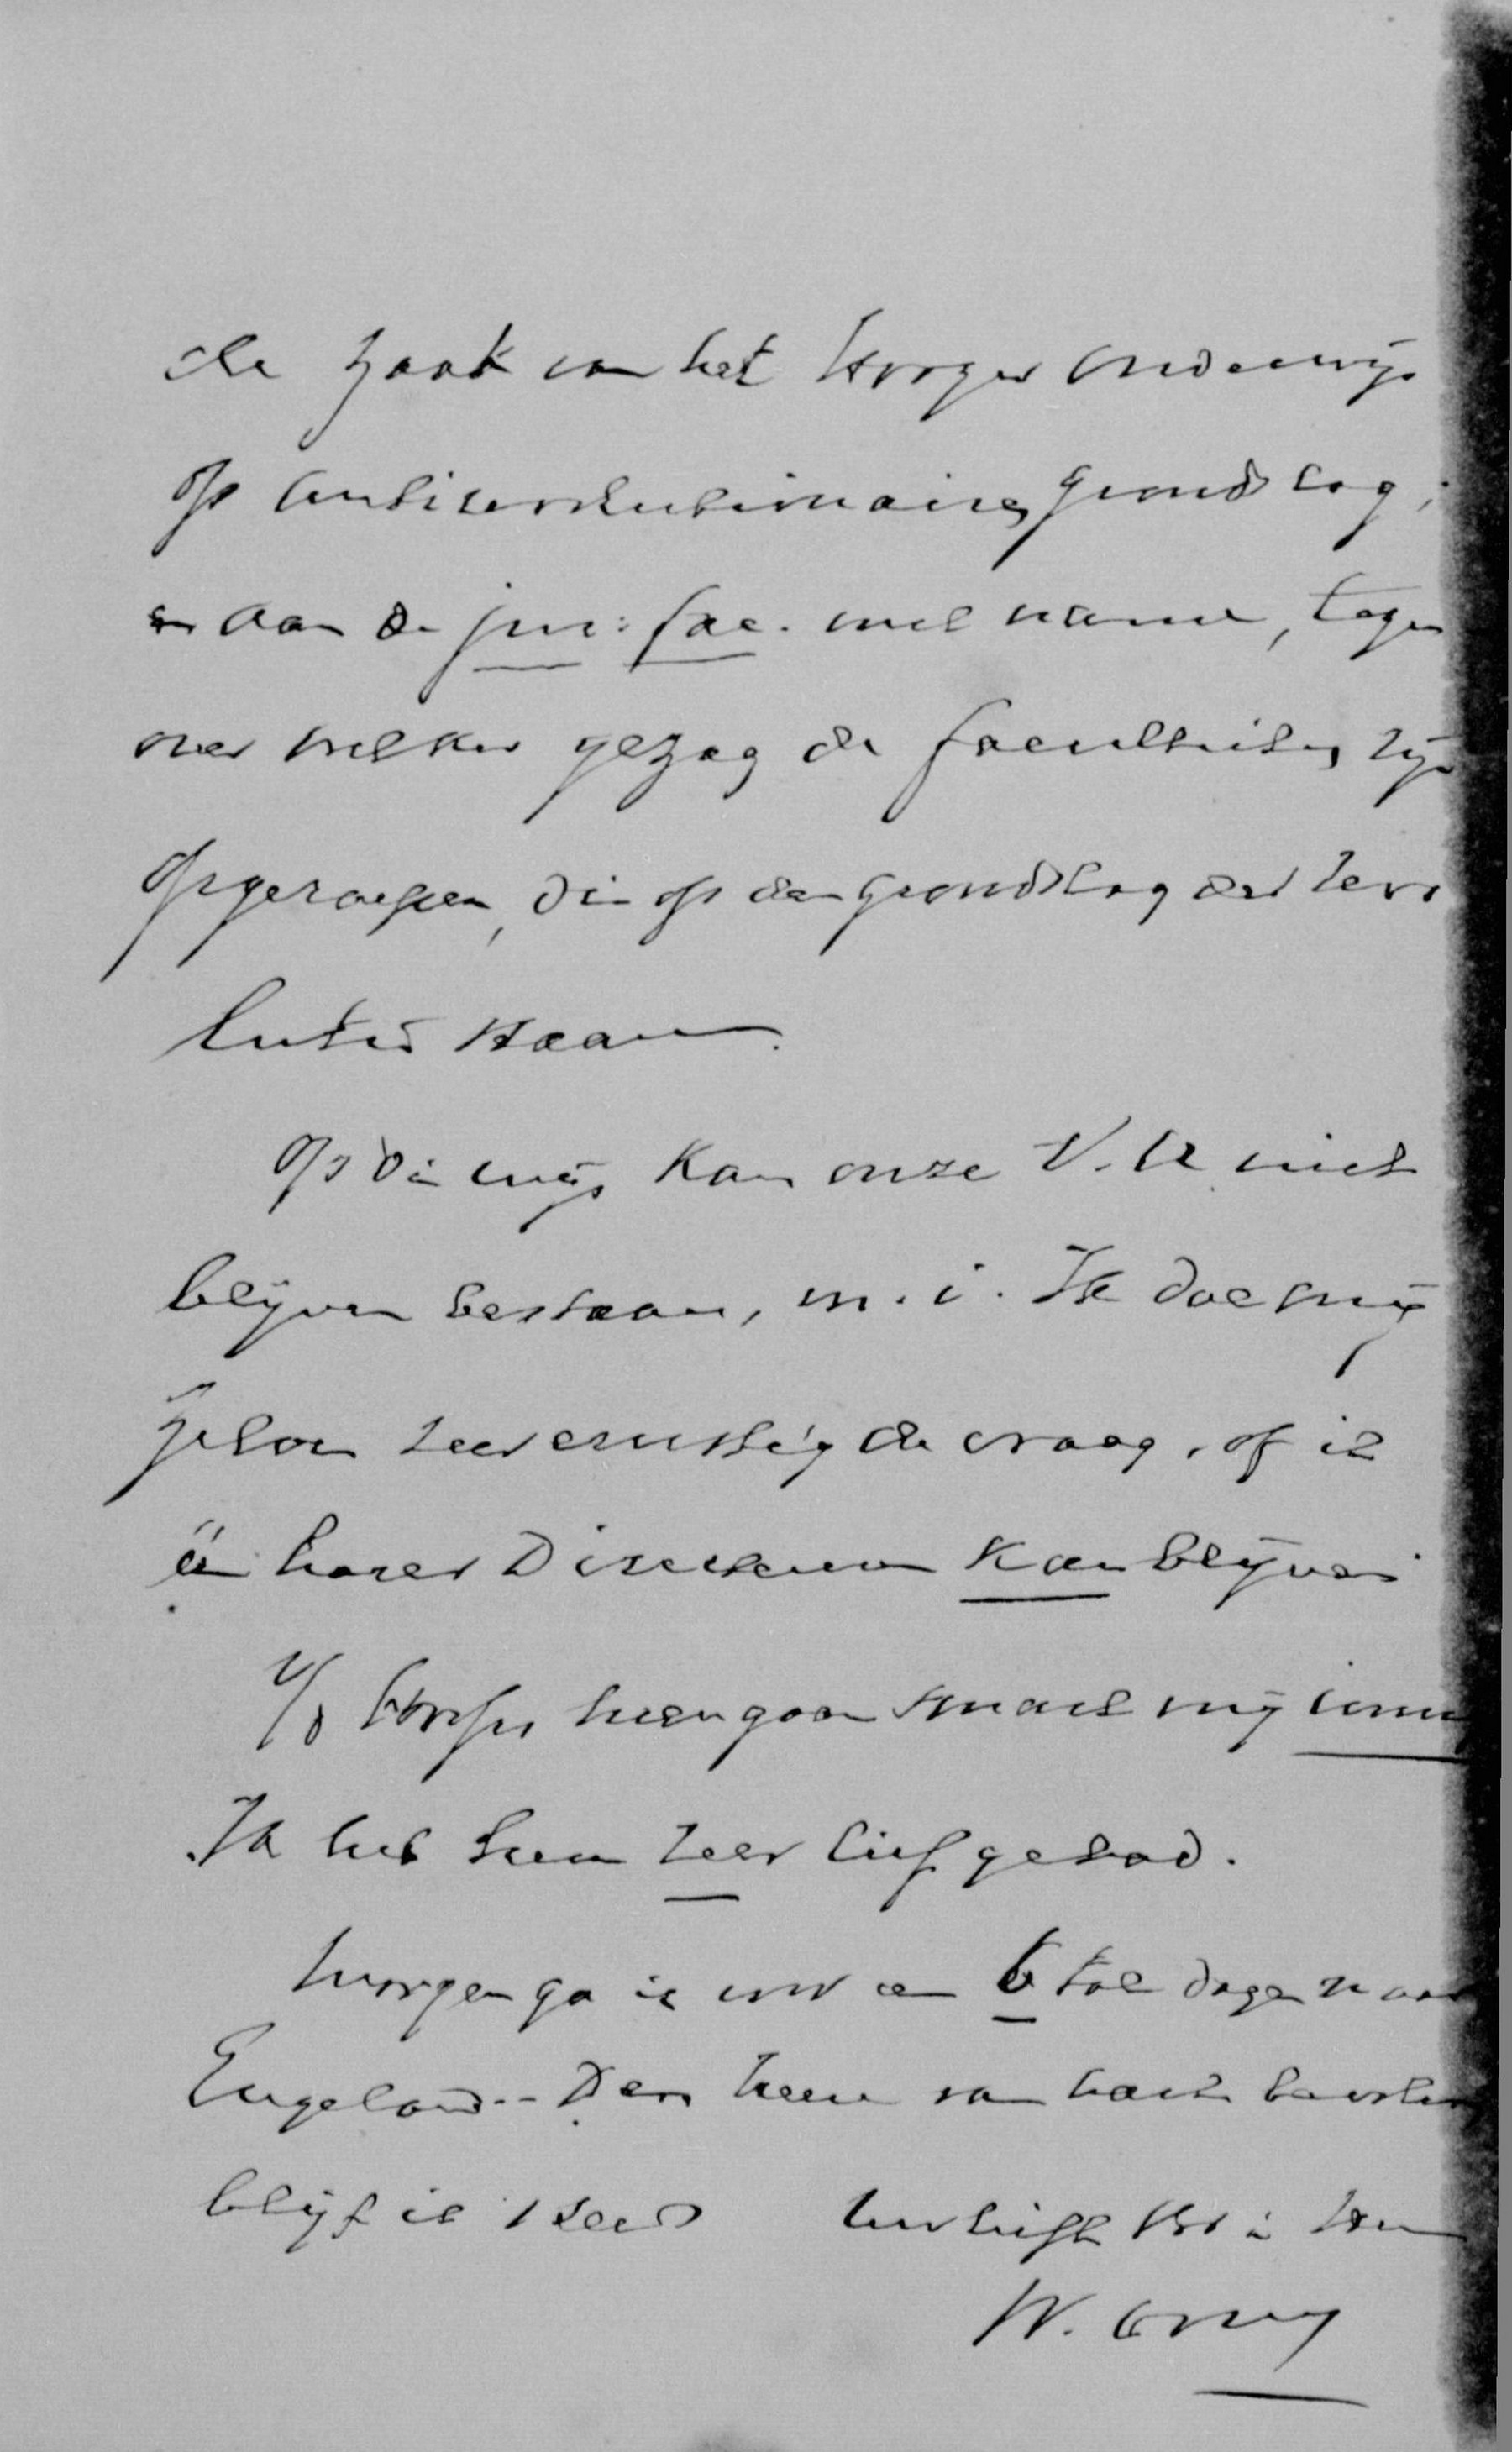 de zaak van het Hooger Onderwijs
op antirevolutionairen grondslag;
en aan de jur: fac. met name, tegen
over welker gezag de faculteiten zijn
opgeroepen, die op den grondslag der revo
lutie staan.
Op die wijs kan onze V.U. niet
blijven bestaan, m.i. Ik doe mij
zelven zeer ernstig de vraag, of ik
één harer Directeuren kan blijven
heengaan smart mij innig
Ik heb hem zeer lief gehad.
Morgen ga ik voor een 6 tal dagen naar
Engeland. - Den Heere van harte bevolen
blijf ik steeds Uw liefh. br. in Hem
W. Hovy